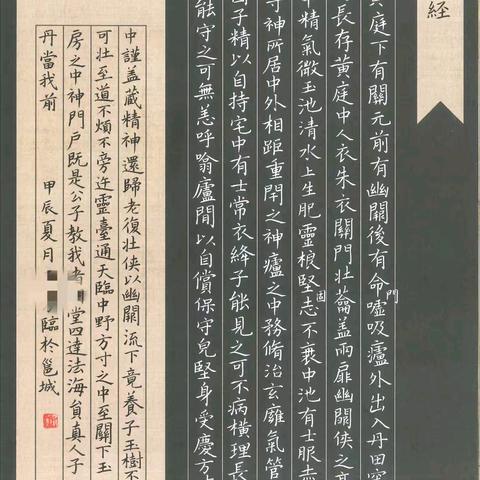 經
庭下有關元前有幽闕後有命門噓吸廬外出入丹田
長存黃庭中人衣朱衣關門壯蘥蓋兩扉幽闕俠之高
中精氣微玉池清水上生肥靈根堅固志不衰中池有士服赤
神所居中外相距重閇之神廬之中務脩治玄廱氣管
子精以自持宅中有士常衣絳子能見之可不病橫理長
能守之可無恙呼噏廬閒以自償保守皃堅身受慶方
中謹蓋藏精神還歸老復壯俠以幽闕流下竟養子玉樹不
可壯至道不煩不旁迕靈臺通天臨中野方寸之中至關下玉
房之中神門戶既是公子教我者堂四達法海員真人子
丹當我前
甲辰夏月 臨於邕城